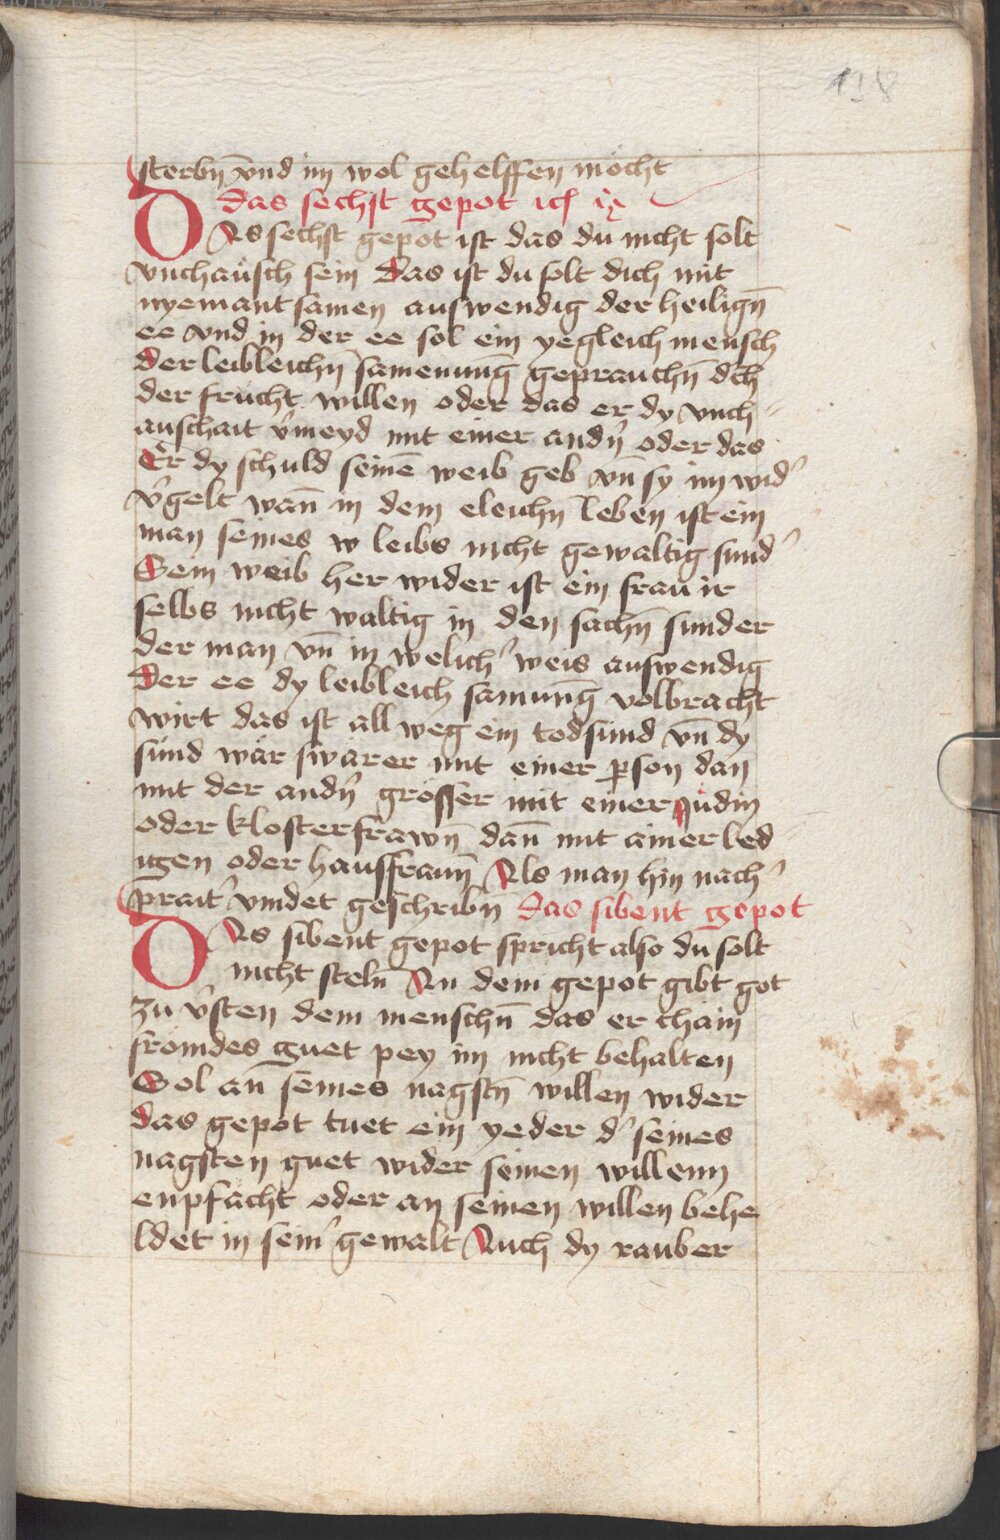 138
sterbn̄ vnd im wol gehelffen möcht
das sechst gepot ich
DAs sechst gepot ist das du nicht solt
vnchaüsch sein Das ist du solt dich mit
nyemant samen auswendig der heilign̄
ee vnd in der ee sol ein yegleich mensch
der leibleichn̄ samenunḡ geprauchn̄ dch̄
der frücht willen oder das er dy vnch-
auschait v̉meyd mit einer andn̉ oder das
Er dy schuld seinē weib geb vn sy im wid̉
v̉gelt wan̄ in dem eleichn̄ leben ist ein
man seines w leibs nicht gewaltig sund̉
Sein weib her wider ist ein frau ir
selbs nicht waltig in den sachn̄ sunder
der man vn̄ in welich̉ weis auswendig
Der ee dy leibleich samunḡ volbracht
wirt das ist all weg ein todsünd vn̄ dy
sünd wär swärer mit einer ꝑson dan
mit der andn̉ grösser mit einer Jüdin
oder klosterfrawn̄ dan̄ mit ainer led
igen oder hausfraun̄ Als man hin nach̉
prait̉ vindet geschribn̄ das sibent gepot
DAs sibent gepot spricht also du solt
nicht steln̄ An dem gepot gibt got
zu v̉sten dem menschn̄ das er chain
frömdes guet pey im nicht behalten
Sol an̄ seines nagstn̄ willen wider
das gepot tuet ein yeder d̉ seines
nagsten guet wider seinen willenn
enpfächt oder an seinen willen behe
ldet in sein̉ gewalt Auch dy rauber